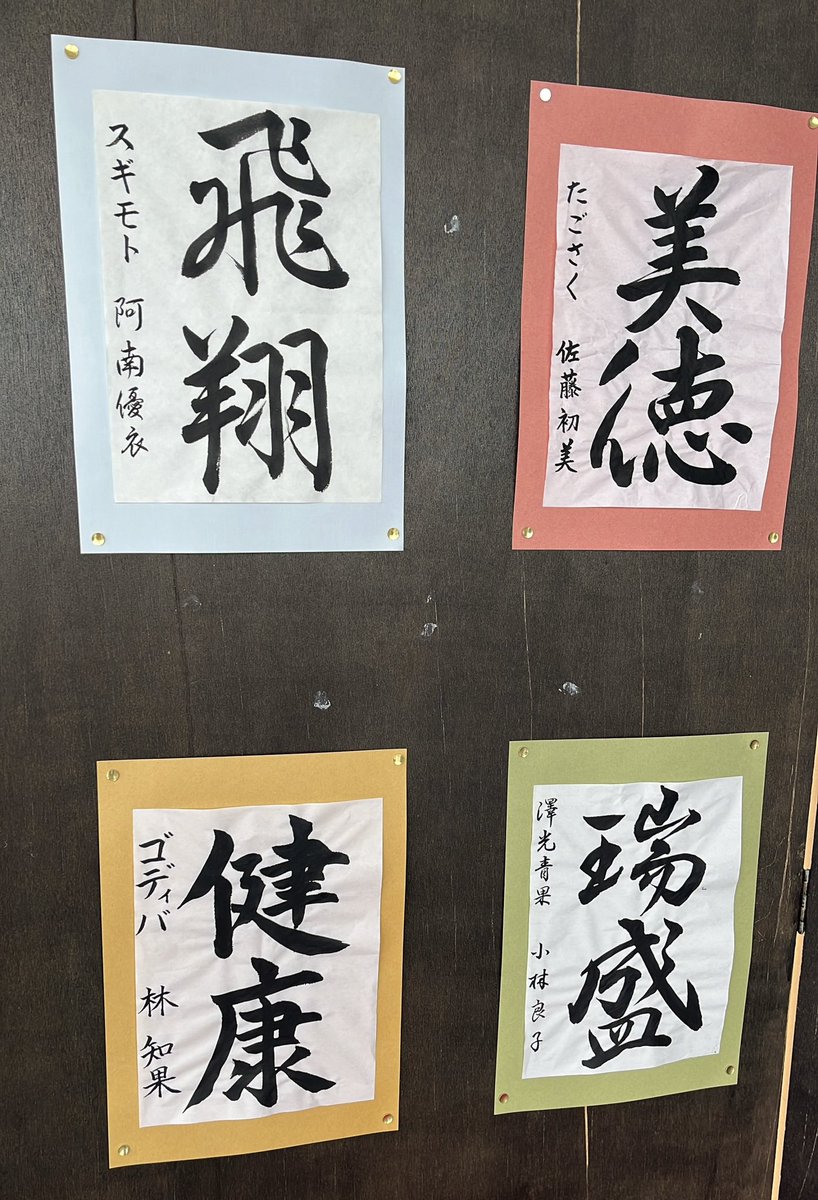 飛翔
スギモト 阿南優衣
美徳
たごさく 佐藤初美
健康
ゴディバ 林知果
瑞盛
澤光青果 小林良子